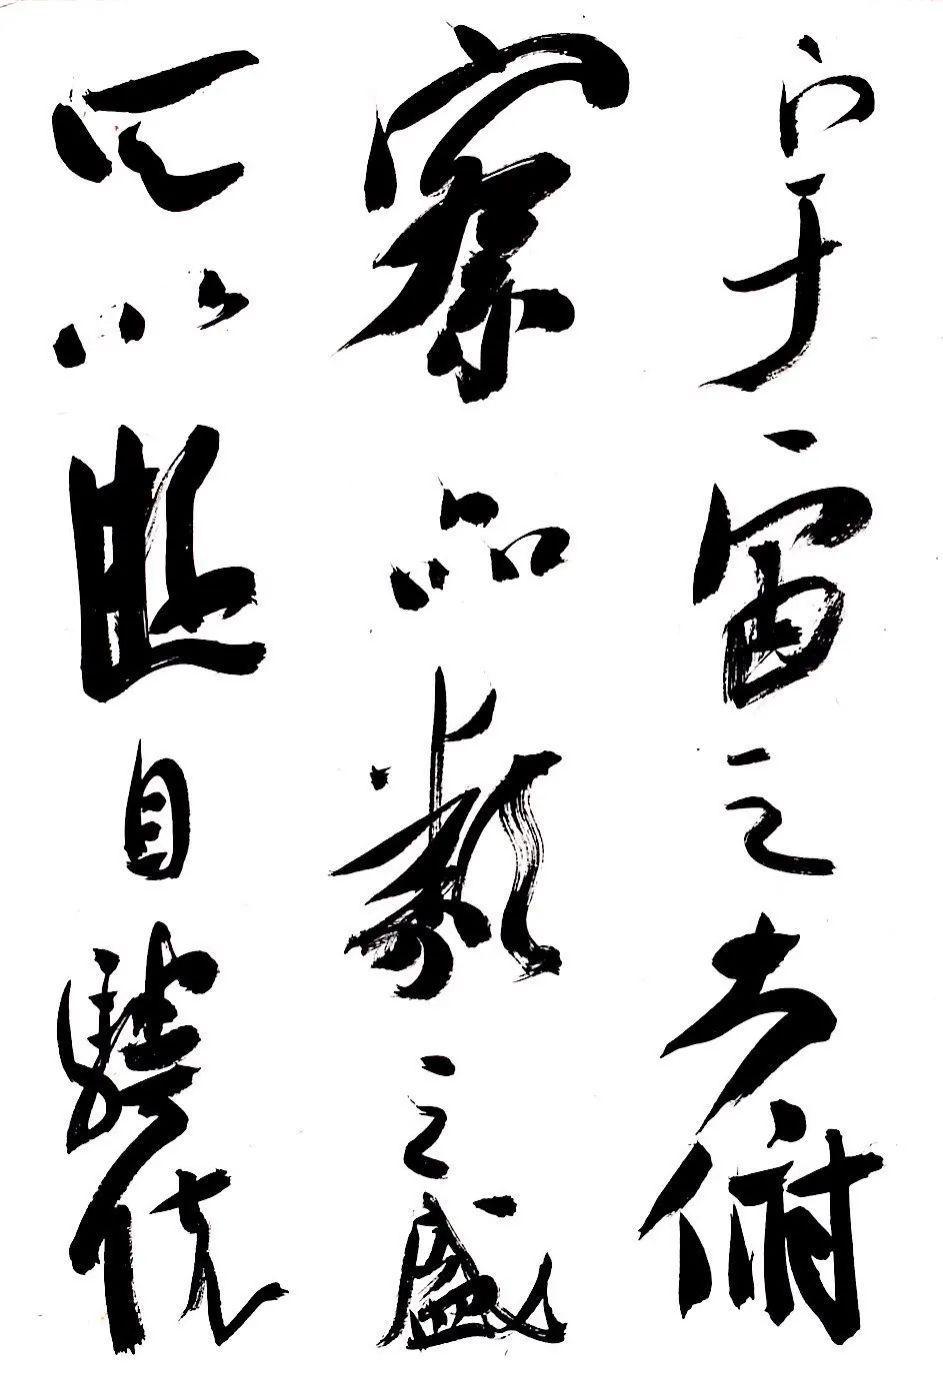 宇宙之大俯
察品類之盛
所以遊目騁懷